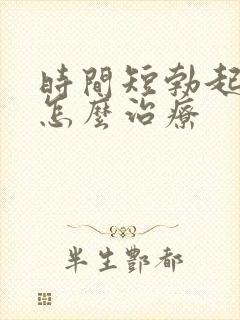 時間短勃起
怎麼治療
半生酆都